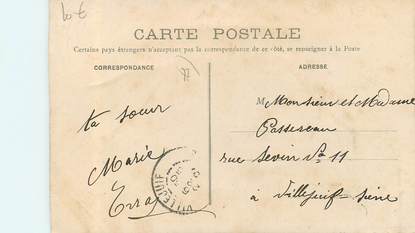 10 €
CARTE POSTALE
Certains pays étrangers n'acceptant pas la correspondance de ce côté, se renseigner à la Poste
CORRESPONDANCE
ADRESSE
ta soeur
Marie
M Monsieur et Madame
Passereau
rue Sevin No 11
à Villejuif-Seine
VILLEJUIF